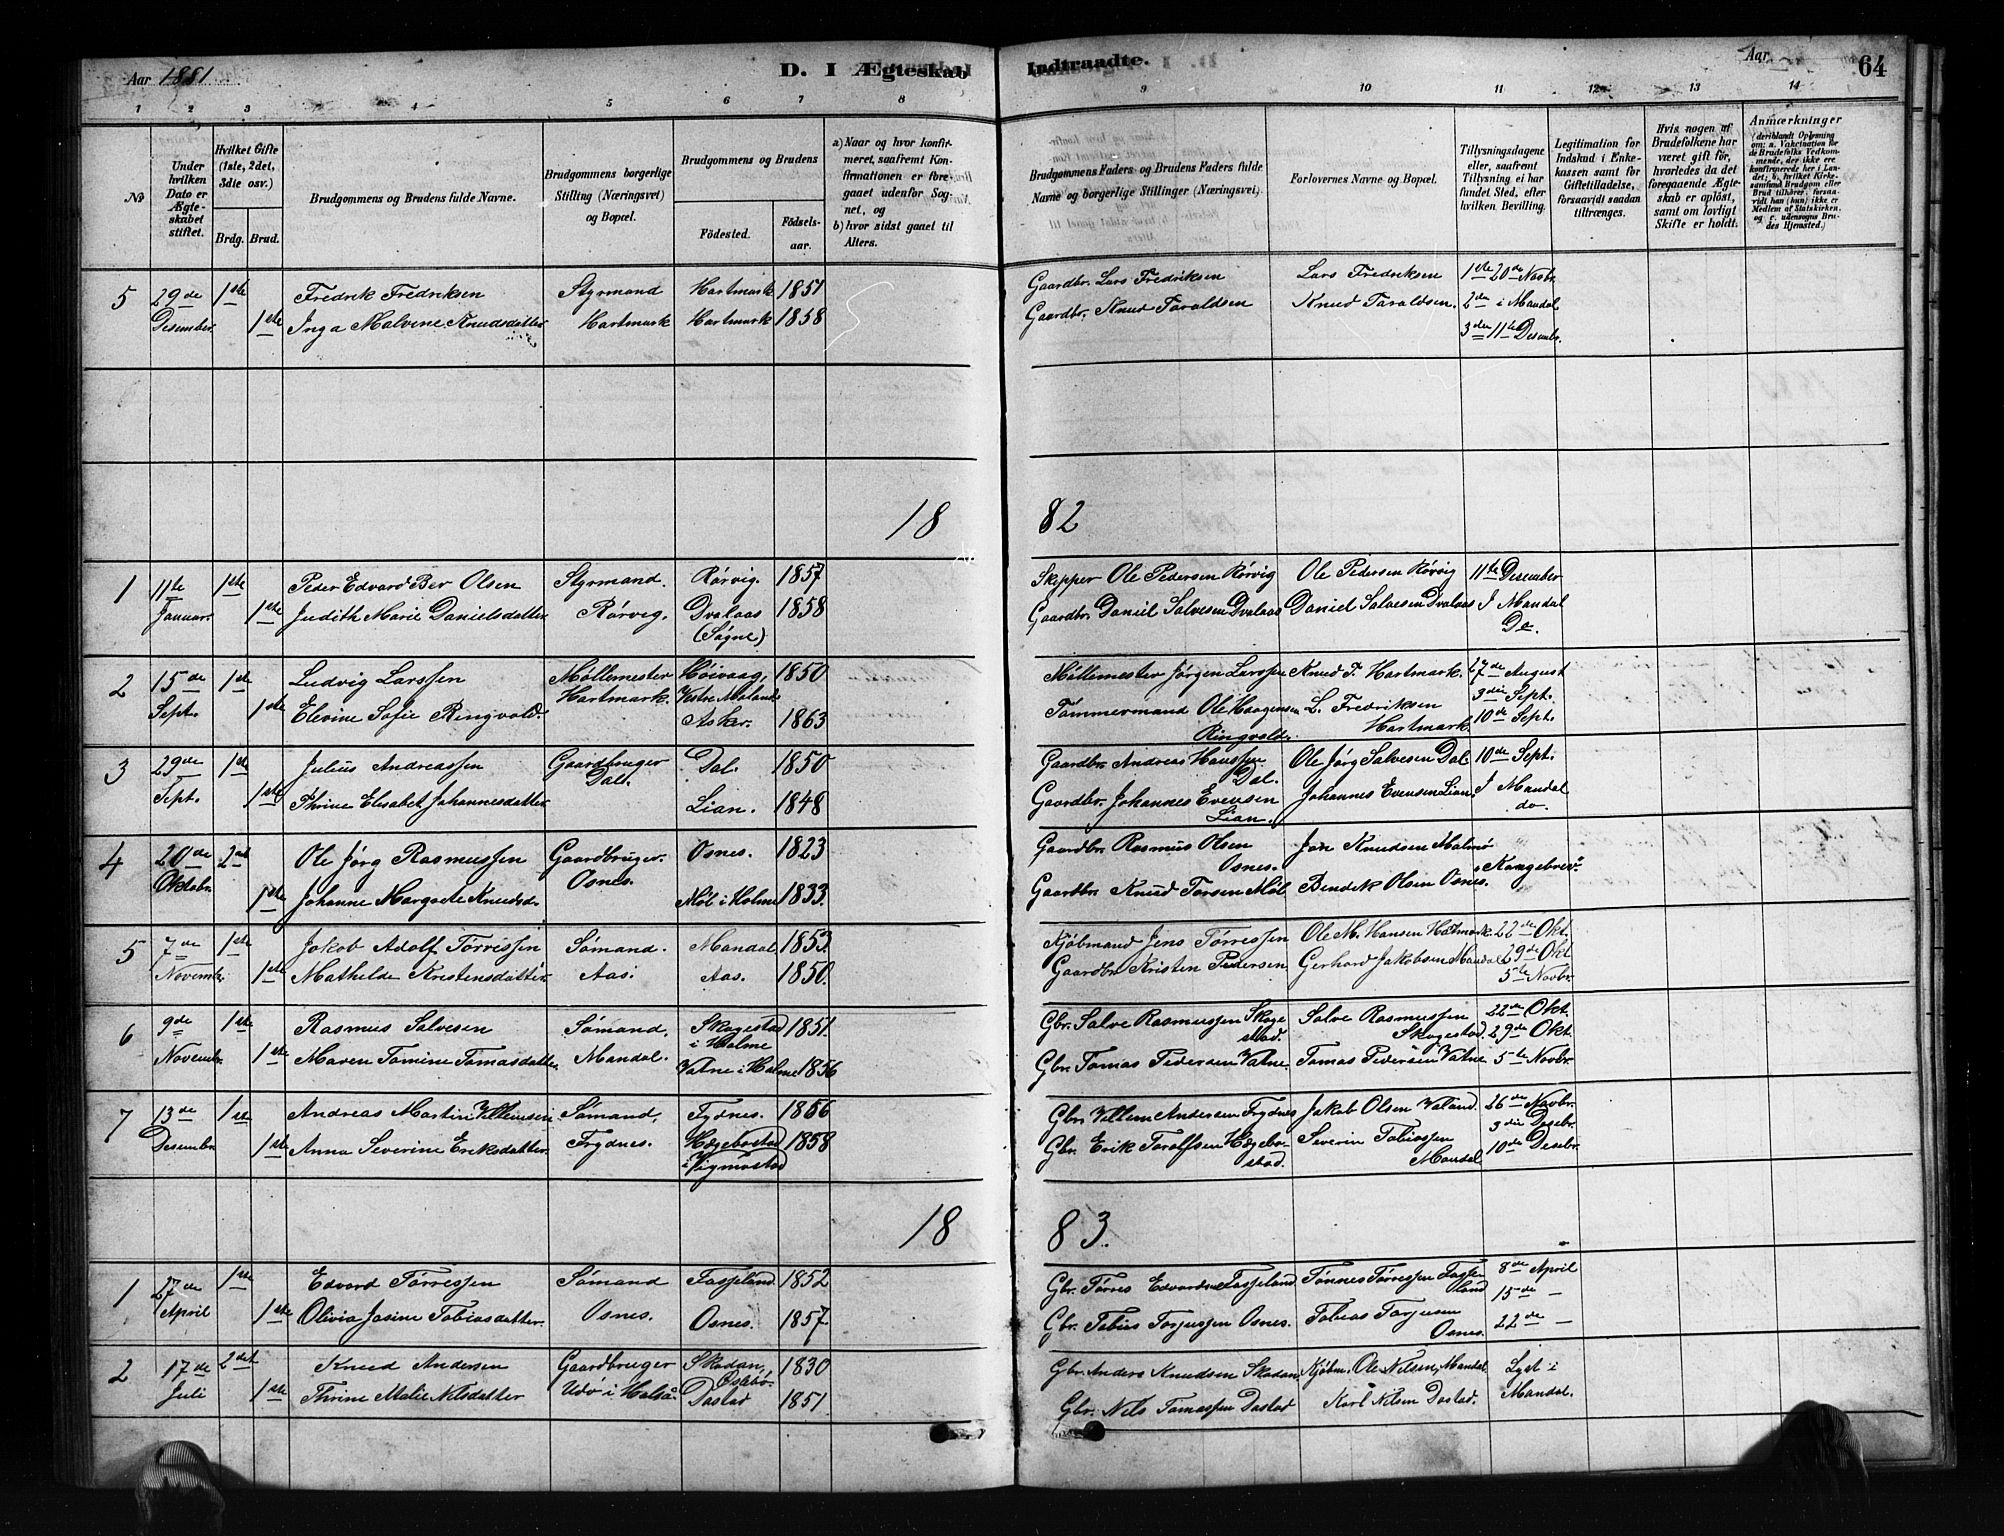 Aar 1881. D. I Ægteskab Indtraadte. Aar 64
1 2 3 4 5 6 7 8 9 10 11 12 13 14
No
Under hvilken Dato er Ægteskabet stiftet.
Hvilket Gifte (1ste, 2det, 3die osv.)
Brdg. Brud.
Brudgommens og Brudens fulde Navne.
Brudgommens borgerlige Stilling (Næringsvei) og Bopæl.
Brudgommens og Brudens
Fødested. Fødselsaar.
a) Naar og hvor konfirmeret, saafremt Konfirmationen er foregaaet udenfor Sognet, og
b) hvor sidst gaaet til Alters.
Brudgommens Faders og Brudens Faders fulde Navne og borgerlige Stillinger (Næringsvei).
Forlovernes Navne og Bopæl.
Tillysningsdagene eller, saafremt Tillysning ei har fundet Sted, efter hvilken Bevilling.
Legitimation for Indskud i Enkekassen samt for Giftetilladelse, forsaavidt saadan tiltrænges.
Hvis nogen af Brudefolkene har været gift før, hvorledes da det foregaaende Ægteskab er opløst, samt om lovligt Skifte er holdt.
Anmærkninger (deriblandt Oplysning om: a. Vaccination for de Brudefolks Vedkommende, der ikke ere konfirmerede her i Landet; b. hvilket Kirkesamfund Brudgom eller Brud tilhører, forsaavidt han (hun) ikke er Medlem af Statskirken, og c. udensogns Brudes Hjemsted.)
5 29de 1ste Fredrik Fredriksen Styrmand Hartmark 1851 Gaardbr. Lars Fredriksen Lars Fredriksen 1ste 20de Novbr.
Desember 1ste Inga Malvine Knudsdatter Hartmark Hartmark 1858 Gaardbr. Knud Taraldsen Knud Taraldsen. 2den i Mandal
3die 11te Desembr.
1882
1 11te 1ste Peder Edvard Ber Olsen Styrmand. Rørvig. 1857 Skipper Ole Pedersen Rørvig Ole Pedersen Rørvig 11te Desember
Januar. 1ste Judith Marie Danielsdatter Rørvig. Dvalaas 1858 Gaardbr. Daniel Salvesen Dvalaas Daniel Salvesen Dvalaas I Mandal
(Søgne) Do.
2 15de 1ste Ludvig Larssen Møllemester Høivaag, 1850 Møllemester Jørgen Larssen Knud T. Hartmark 27de August
Sept. 1ste Elevine Sofie Ringvold. Hartmark. Vestre Moland 3die Sept.
Asker. 1863 Tømmermand Ole Haagensen L. Fredriksen 10de Sept.
Ringvold. Hartmark.
3 29de 1ste Julius Andreassen Gaardbruger Dal. 1850 Gaardbr. Andreas Hanssen Ole Jørg Salvesen Dal 10de Sept.
Dal. Dal.
Sept. 1ste Thrine Elisabet Johannesdatter Lian. 1848 Gaardbr. Johannes Evensen Johannes Evensen Lian. I Mandal
Lian. do.
4 20de 2det Ole Jørg Rasmussen Gaardbruger. Osnes. 1823 Gaardbr. Rasmus Olsen Jon Knudsen Malmø
Oktobr. Osnes. Osnes. Kongebrev.
1ste Johanne Margrete Knudsd. Møl i Holme 1833. Gaardbr. Knud Torsen Møl Bendik Olsen Osnes.
5 7de 1ste Jakob Adolf Tørrissen Sømand. Mandal 1853. Kjøbmand Jens Tørressen Ole M. Hansen Hartmark 22de Okt.
November 1ste Mathilde Kristensdatter Aas. Aas. 1850. Gaardbr. Kristen Pedersen Gerhard Jakobsen Mandal 29de Okt
5te Novbr.
6 9de 1ste Rasmus Salvesen Sømand, Skogestad 1851. Gbr. Salve Rasmussen Skogestad. Salve Rasmussen 22de Okt.
i Holme Skogestad. 29de Okt.
Novembr. 1ste Maren Tomine Tomasdatter Mandal. Vatne i Holme 1856 Gbr. Tomas Pedersen Vatne. Tomas Pedersen Vatne 5te Novbr.
7 13de 1ste Andreas Martin Villemsen Sømand, Frydnes. 1856 Gbr. Villem Andersen Frydnes Jakob Olsen Valand. 26de Novbr.
3die Desbr.
Desembr. 1ste Anna Severine Eriksdatter. Frydnes. Hægebostad 1858 Gbr. Erik Taralfsen Hægebostad. Severin Tobiassen 10de Desbr.
i Vigmostad Mandal
1883.
1 27de 1ste Edvard Tørressen Sømand Fasseland. 1852 Gbr. Tørres Edvardsen Fasseland Tønnes Tørressen Fasseland 8de April
15de –
April 1ste Olivia Josine Tobiasdatter. Osnes. Osnes. 1857 Gbr. Tobias Torjussen Osnes. Tobias Torjusen 22de –
Osnes.
2 17de 2det Knud Andersen Gaardbruger Skadan, 1830 Gbr. Anders Knudsen Skadan, Kjøbm. Ole Nilsen, Mandal Lyst i
Juli 1ste Thrine Malie Nilsdatter Udø i Halsaa Dastad 1851 Gbr. Nils Tomassen Dastad Karl Nilsen Dastad. Mandal.